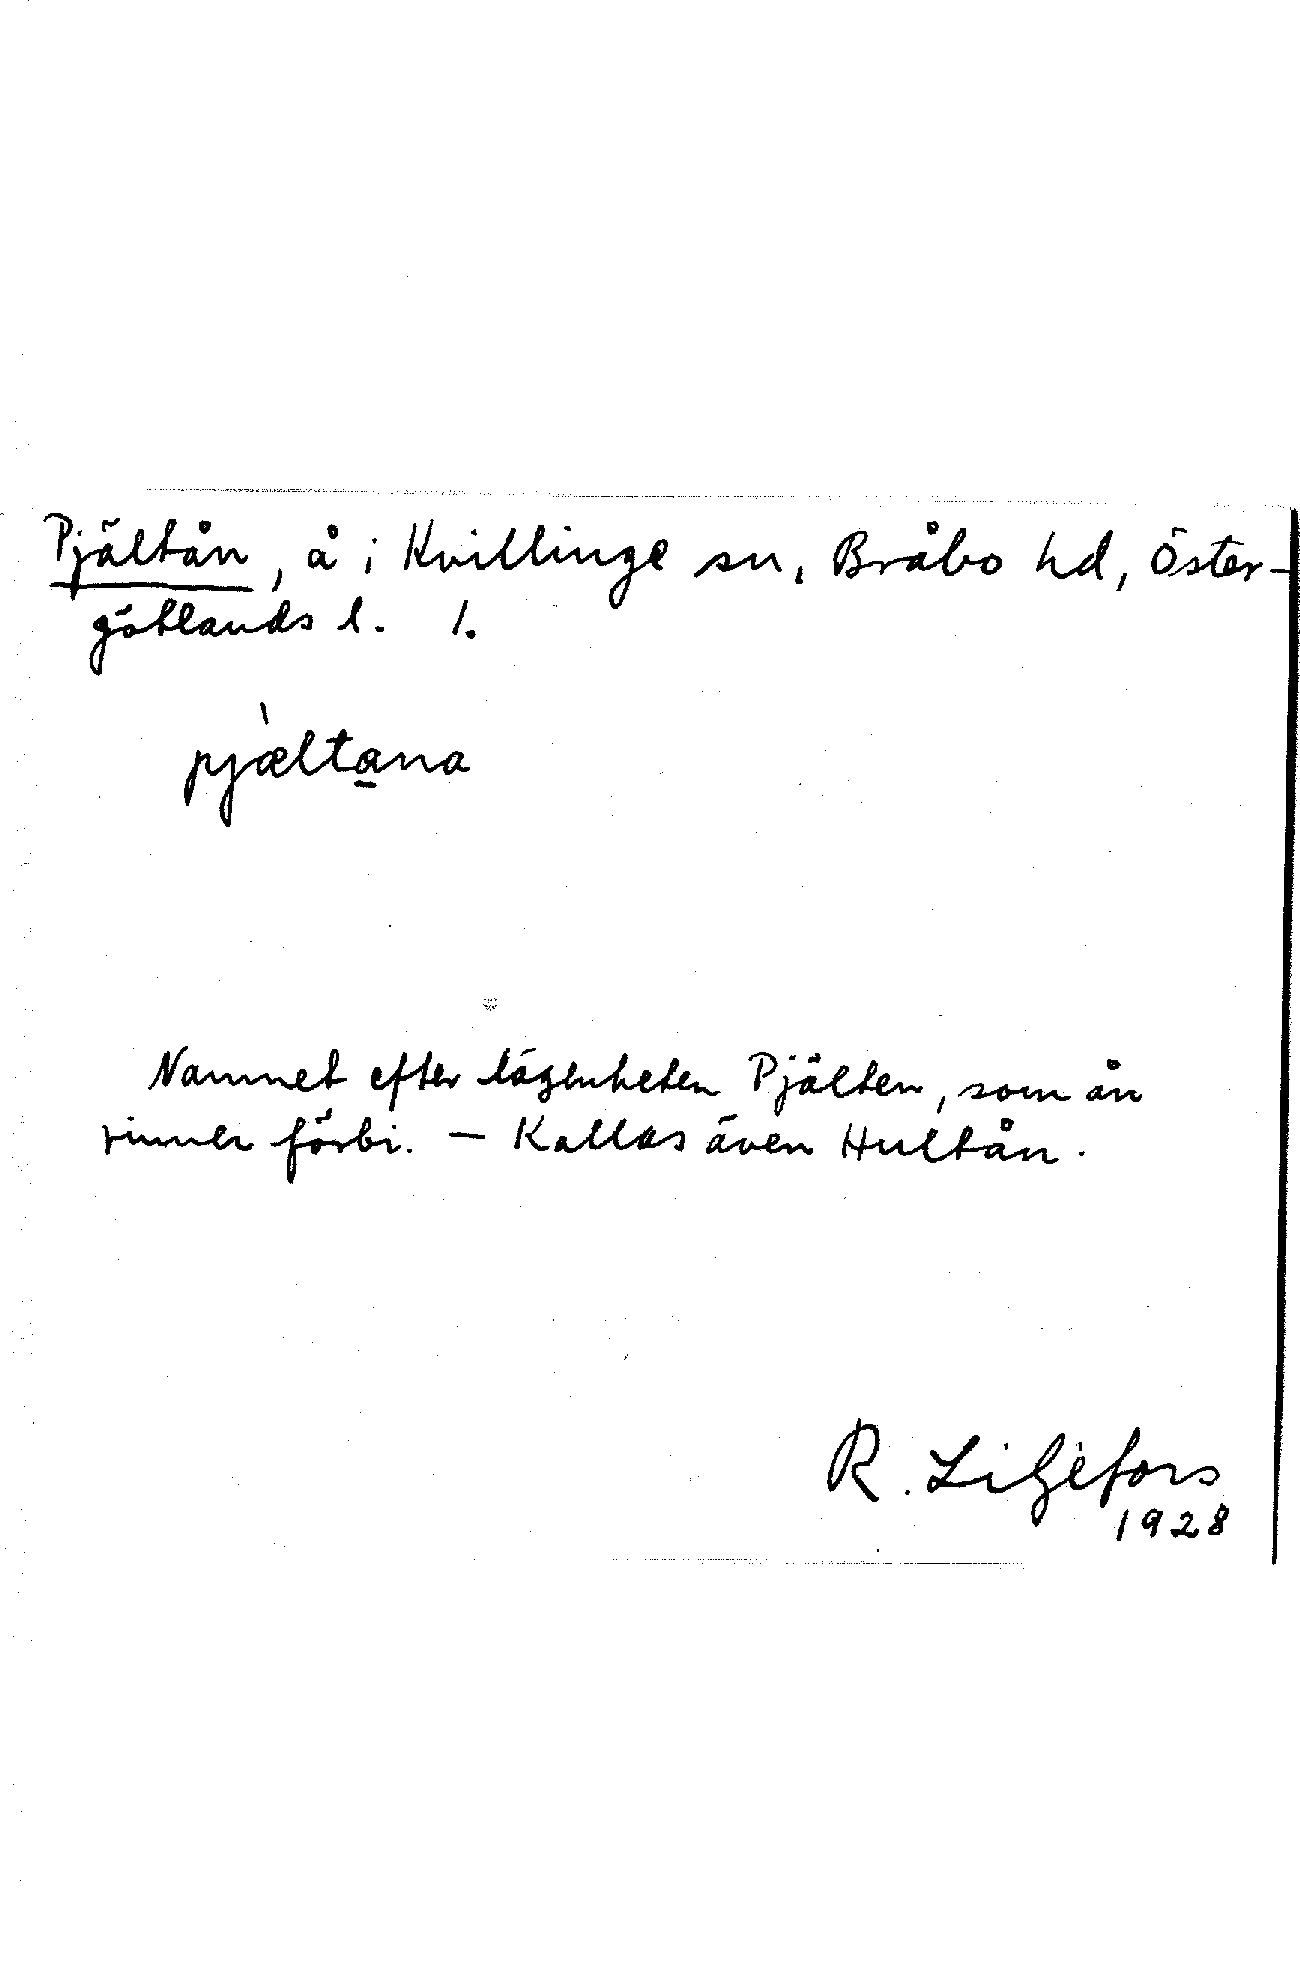 Pjältån, å i Kvillinge sn, Bråbo hd, Öster-
götlands l. 1.
pjæ̀lta̲na
Namnet efter lägenheten Pjälten, som ån
rinner förbi. – Kallas även Hultån.
R. Liljefors
1928